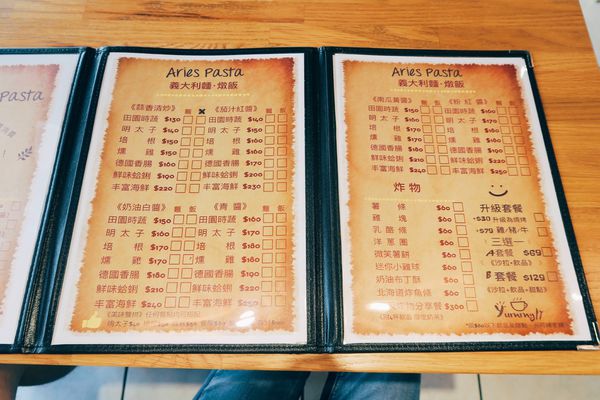 Pasta
Aries Pasta
義大利麵·燉飯
《蒜香清炒》 麵 飯 《茄汁紅醬》 麵 飯
田園時蔬 $130 田園時蔬 $140
明太子 $140 明太子 $150
培根 $150 培根
燻雞 燻雞 $170
德國香腸 $160 德國香腸 $170
鮮味蛤蜊 $190 鮮味蛤蜊 $200
丰富海鮮 $220 丰富海鮮 $230
《奶油白醬》 麵 飯 《青醬》 麵 飯
田園時蔬 $150 田園時蔬 $160
明太子 $160 明太子
培根 $170 培根
燻雞 燻雞
德國香腸 $180 德國香腸
鮮味蛤蜊 $210 鮮味蛤蜊
丰富海鮮 $240 丰富海鮮 $250
Aries Pasta
義大利麵·燉飯
《南瓜黃醬》 麵 飯 《粉紅醬》 麵 飯
田園時蔬 $150 田園時蔬 $160
明太子 $160 明太子
培根 $170 培根
燻雞 燻雞
德國香腸 德國香腸 $190
鮮味蛤蜊 鮮味蛤蜊
丰富海鮮 $240 丰富海鮮 $250
炸物
薯條 $60
雞塊 $60
乳酪條 $60
洋蔥圈 $60
微笑薯餅 $60
迷你小雞球 $60
奶油布丁酥 $60
北海道炸魚條 $60
炸物分享餐 $300
升級套餐
+$30 升級為焗烤
+$79 雞/豬/牛
三選一
A套餐 $69
(沙拉+飲品)
B套餐 $129
(沙拉+飲品+甜點)
Yummy!!